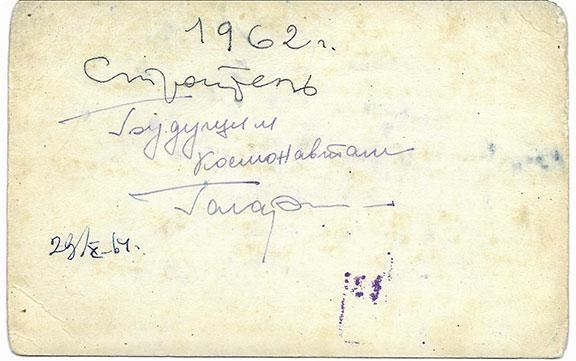 1962 г.
Строитель
Будущим
космонавтам
Гагарин
29/X-64.